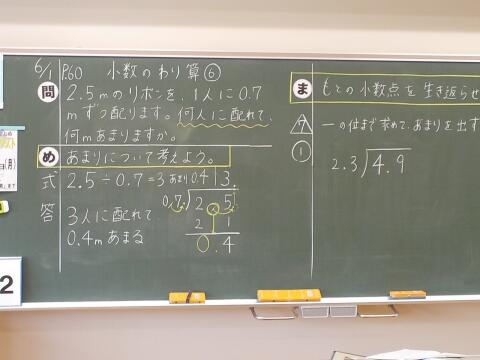 6/1 P.60 小数のわり算⑥
問 2.5mのリボンを、1人に0.7
mずつ配ります。何人に配れて、
何mあまりますか。
め あまりについて考えよう。
式 2.5÷0.7=3 あまり0.4
答 3人に配れて
0.4mあまる
3.
0.7 2.5
2 1
0.4
ま もとの小数点を生き返らせ
7 一の位まで求めて、あまりを出す
① 2.3 4.9
2